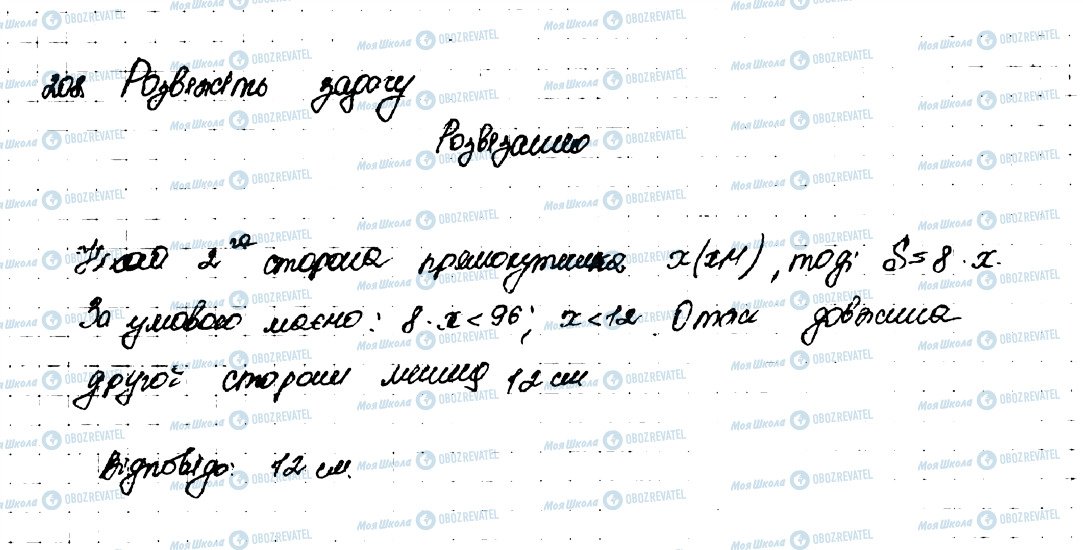 208. Розвяжіть задачу
Розвязання
Нехай 2га сторона прямокутника x(см), тоді S = 8 · x.
За умовою маємо: 8 · x < 96; x < 12 Отже довжина
другої сторони менша 12 см
Відповідь: 12 см.
МояШкола OBOZREVATEL